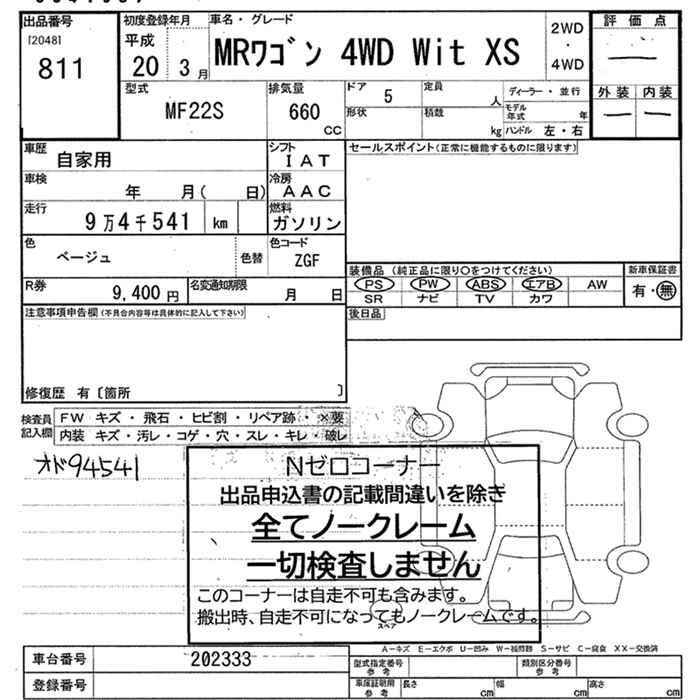 出品番号
[2048]
811
初度登録年月
平成
20 3月
車名・グレード
MRワゴン 4WD Wit XS
2WD
・
4WD
評価点
外装 内装
型式
MF22S
排気量
660
CC
ドア 5
定員
人
形状
積載
kg
ディーラー・並行
モデル年式
年
ハンドル 左・右
車歴
自家用
シフト
IAT
車検
年 月( 日)
冷房
AAC
走行
9万4千541 km
燃料
ガソリン
色
ベージュ
色替
色コード
ZGF
R券
9,400円
名変通知期限
月 日
セールスポイント(正常に機能するものに限ります)
装備品(純正品に限り〇をつけてください)
新車保証書
PS PW ABS エアB AW
有・無
SR ナビ TV カワ
後日品
注意事項申告欄(不具合内容等は具体的に記入して下さい)
修復歴 有〔箇所 〕
検査員記入欄
FW キズ・飛石・ヒビ割・リペア跡・×要
内装 キズ・汚レ・コゲ・穴・スレ・キレ・破レ
オド94541
Nゼロコーナー
出品申込書の記載間違いを除き
全てノークレーム
一切検査しません
このコーナーは自走不可も含みます。
搬出時、自走不可になってもノークレームです。
スペア
A-キズ E-エクボ U-凹み W-補修跡 S-サビ C-腐食 XX-交換済
車台番号 202333
登録番号
型式指定番号
参考
類別区分番号
参考
車庫証明用
参考
長さ cm 幅 cm 高さ cm